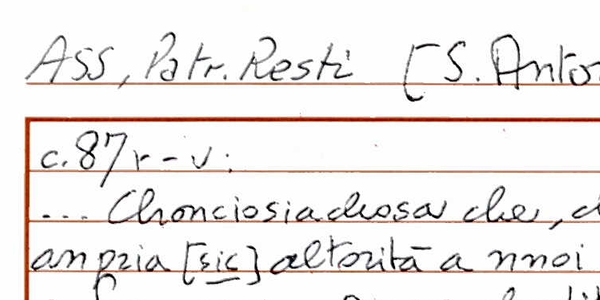 ASS, Patr. Resti [S. Anto
c. 87 r - v:
... Chonciosiachosa che, d
anpria [sic] altorità a nnoi